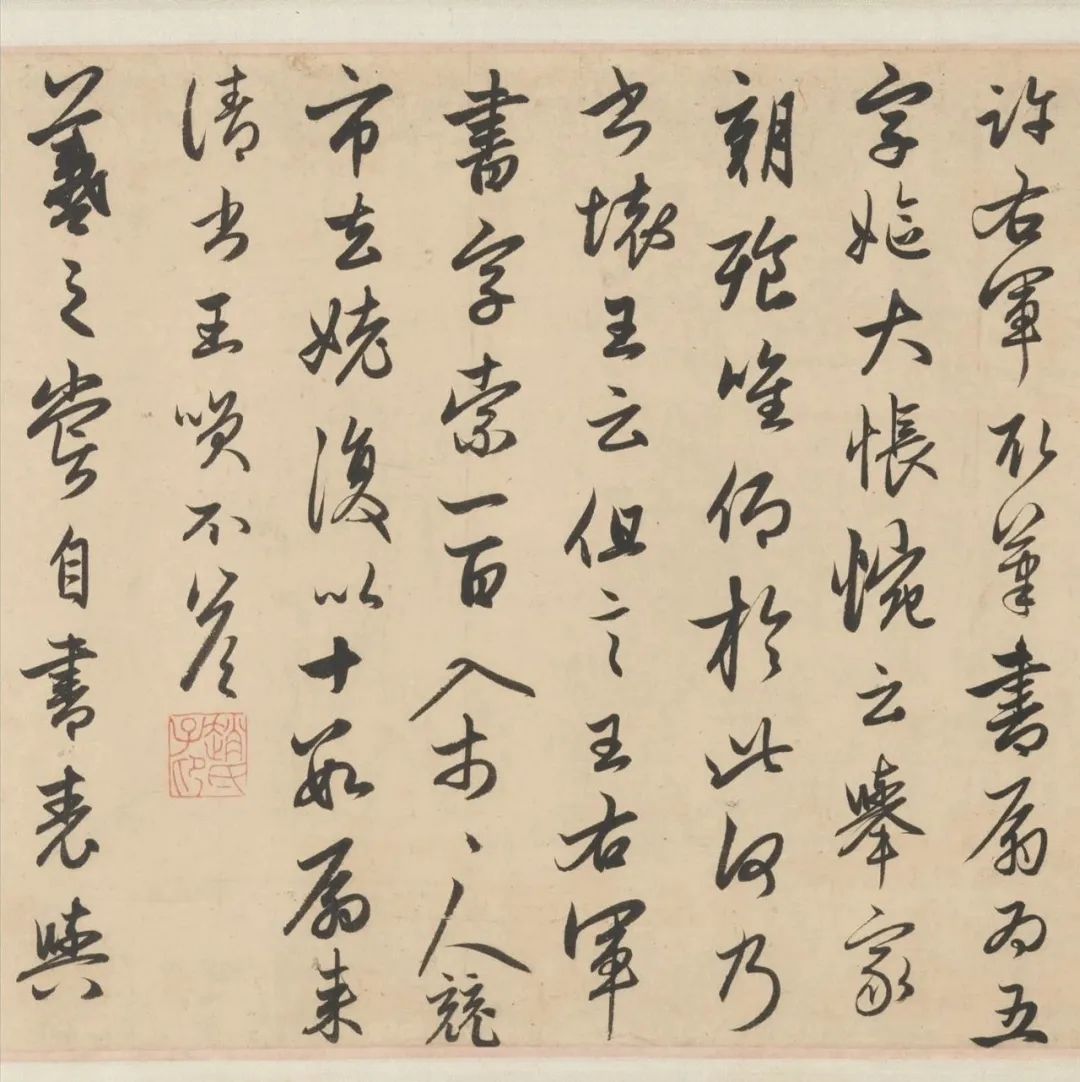 許右軍取筆書扇為五
字嫗大悵惋云舉家
朝飱唯仰於此何乃
書壞王云但言王右軍
書字索一百入市〻人競
市去姥復以十數扇来
請書王笑不答
趙氏子昂
羲之嘗自書表與